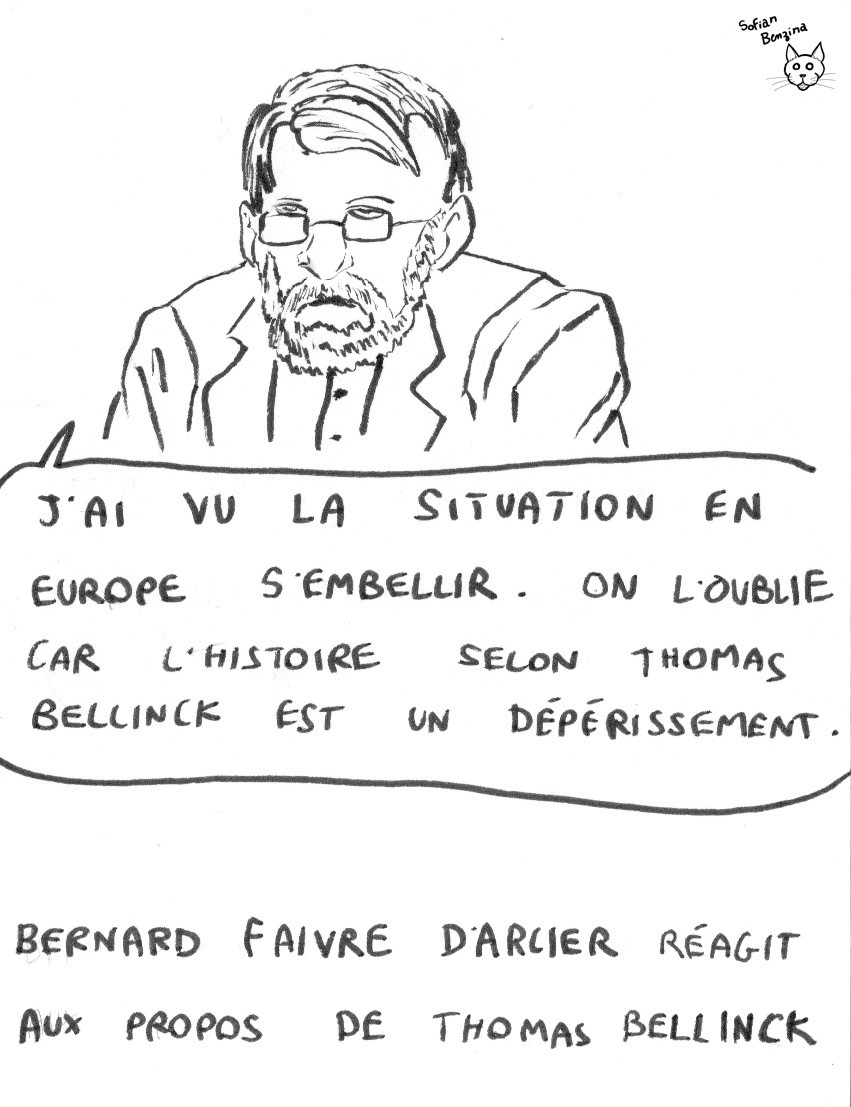 Sofian
Benzina
J'AI VU LA SITUATION EN
EUROPE S'EMBELLIR. ON L'OUBLIE
CAR L'HISTOIRE SELON THOMAS
BELLINCK EST UN DÉPÉRISSEMENT.
BERNARD FAIVRE D'ARCIER RÉAGIT
AUX PROPOS DE THOMAS BELLINCK